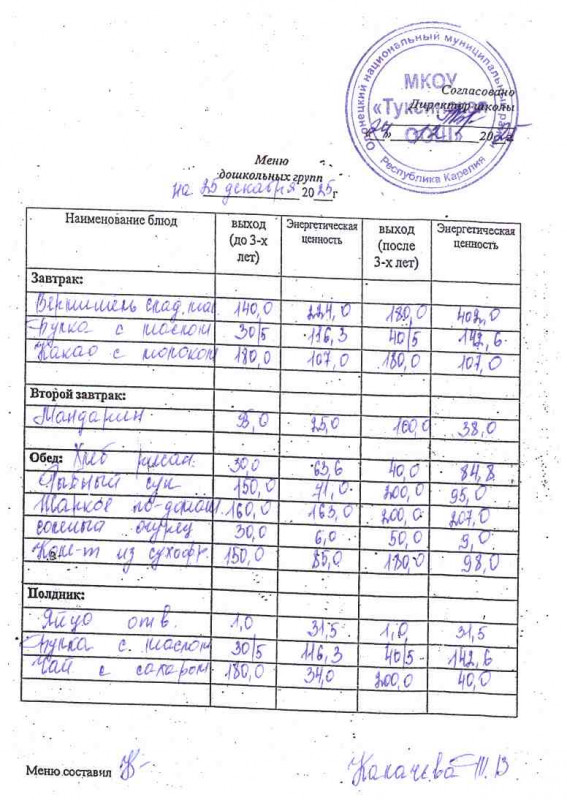 Олонецкий национальный муниципальный район
МКОУ
Согласовано
Директор школы
ООШ»
20
Республика Карелия
Меню
дошкольных групп
на 25 декабря 2025г
Наименование блюд выход (до 3-х лет) Энергетическая ценность выход (после 3-х лет) Энергетическая ценность
Завтрак:
Вермишель 140,0 224,0 180,0 402,0
Булка с маслом 30/5 116,3 40/5 142,6
Какао с молоком 180,0 107,0 180,0 107,0
Второй завтрак:
Мандарин 25,0 100,0 38,0
Обед: Хлеб ржан 30,0 63,6 40,0 84,8
Рыбный суп 150,0 71,0 200,0 95,0
Жаркое по-домаш 160,0 163,0 200,0 207,0
соленый огурец 30,0 6,0 50,0 9,0
Комп-т из сухофр. 150,0 85,0 180,0 98,0
Полдник:
Яйцо отв. 1,0 31,5 1,0 31,5
Булка с маслом 30/5 116,3 40/5 142,6
Чай с сахаром 180,0 34,0 200,0 40,0
Меню составил